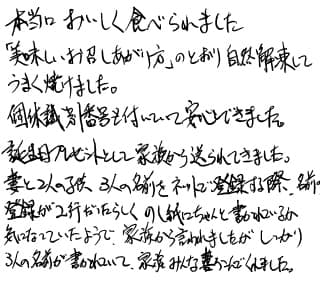 本当においしく食べられました
「美味しいお召しあがり方」のとおり自然解凍して
うまく焼けました。
個体識別番号も付いていて安心できました。
誕生日プレゼントとして家族から送られてきました。
妻と2人の子供、3人の名前をネットで登録する際、名前の
登録が2行だったらしく のし紙にちゃんと書かれているか
気になっていたようで、家族から言われましたが しっかり
3人の名前が書かれていて、家族みんな喜んでくれました。